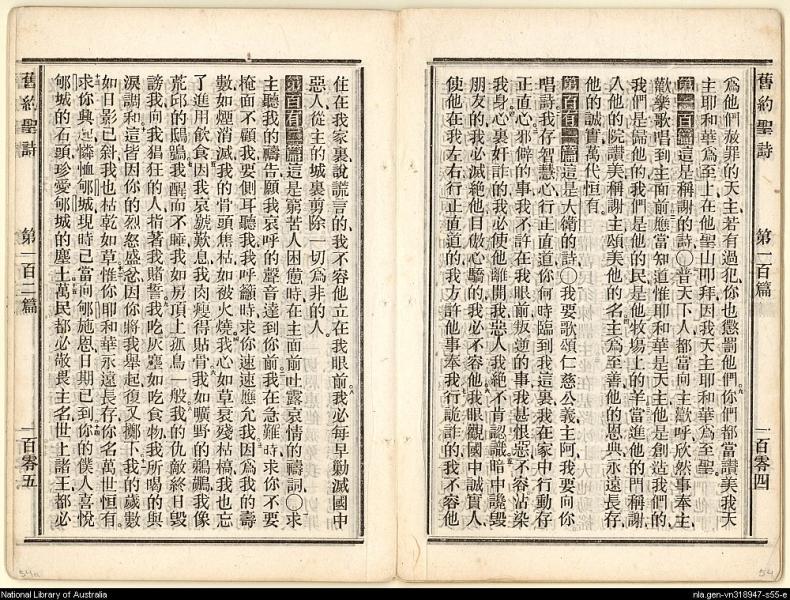 舊約聖詩 第一百篇 一百零四
爲他們赦罪的天主若有過犯你也懲罰他們你們都當讚美我天
主耶和華爲至上在他聖山叩拜因我天主耶和華爲至聖
第一百篇這是稱謝的詩〇普天下人都當向主歡呼欣然事奉主
歡樂歌唱到主面前應當知道惟耶和華是天主他是創造我們的
我們是歸他的我們是他的民是他牧場上的羊當進他的門稱謝
入他的院讚美稱謝主頌美他的名主爲至善他的恩典永遠長存
他的誠實萬代恒有
第百有一篇這是大衛的詩〇我要歌頌仁慈公義主阿我要向你
唱詩我存智慧心行正直道你何時臨到我這裏我在家中行動存
正直心邪僻的事我不許在我眼前叛逆的事我甚恨惡不容沾染
我身心裏奸詐的我必使他離開我惡人我絕不肯認識暗中讒毀
朋友的我必滅絕他目傲心驕的我必不容他我眼觀國中誠實人
使他在我左右行正直道的我方許他事奉我行詭詐的我不容他
住在我家裏說謊言的我不容他立在我眼前我必每早勦滅國中
惡人從主的城裏剪除一切爲非的人
第百有二篇這是窮苦人困憊時在主面前吐露哀情的禱詞〇求
主聽我的禱告願我哀呼的聲音達到你前我在急難時求你不要
掩面不顧我要側耳聽我我呼籲時求你速速應允我因爲我的壽
數如煙消滅我的骨頭焦枯如被火燒我心如草衰殘枯槁我也忘
了進用飮食因我哀號歎息我肉瘦得貼骨我如曠野的鵜鶘我像
荒邱的鴟鴞我醒而不睡我如房頂上孤鳥一般我的仇敵終日毀
謗我向我猖狂的人指著我賭誓我吃灰塵如吃食物我所喝的與
淚調和這皆因你的烈怒盛忿因你將我舉起復又擲下我的歲數
如日影已斜我也枯乾如草惟你耶和華永遠長存你名萬世恒有
求你興起憐恤郇城現時已當向郇施恩日期已到你的僕人喜悅
郇城的石頭珍愛郇城的塵土萬民都必敬畏主名世上諸王都必
舊約聖詩 第一百二篇 一百零五
54a
54
National Library of Australia
nla.gen-vn318947-s55-e